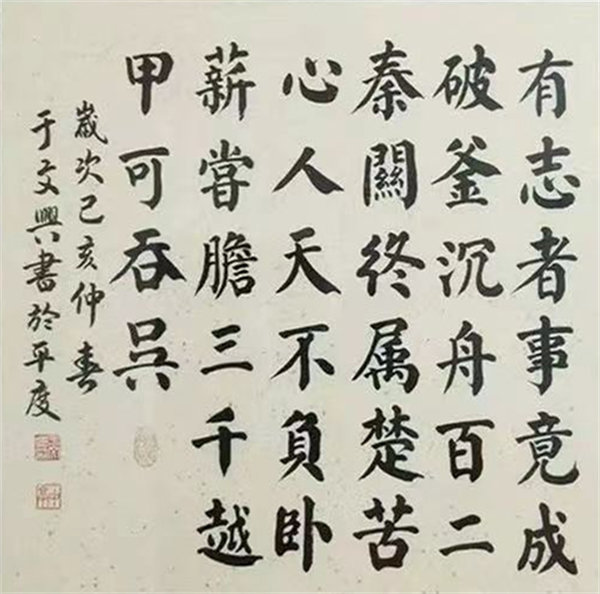 有志者事竟成
破釜沉舟百二
秦關终属楚苦
心人天不負卧
薪嘗膽三千越
甲可吞吴
歲次己亥仲春
于文興書於平度